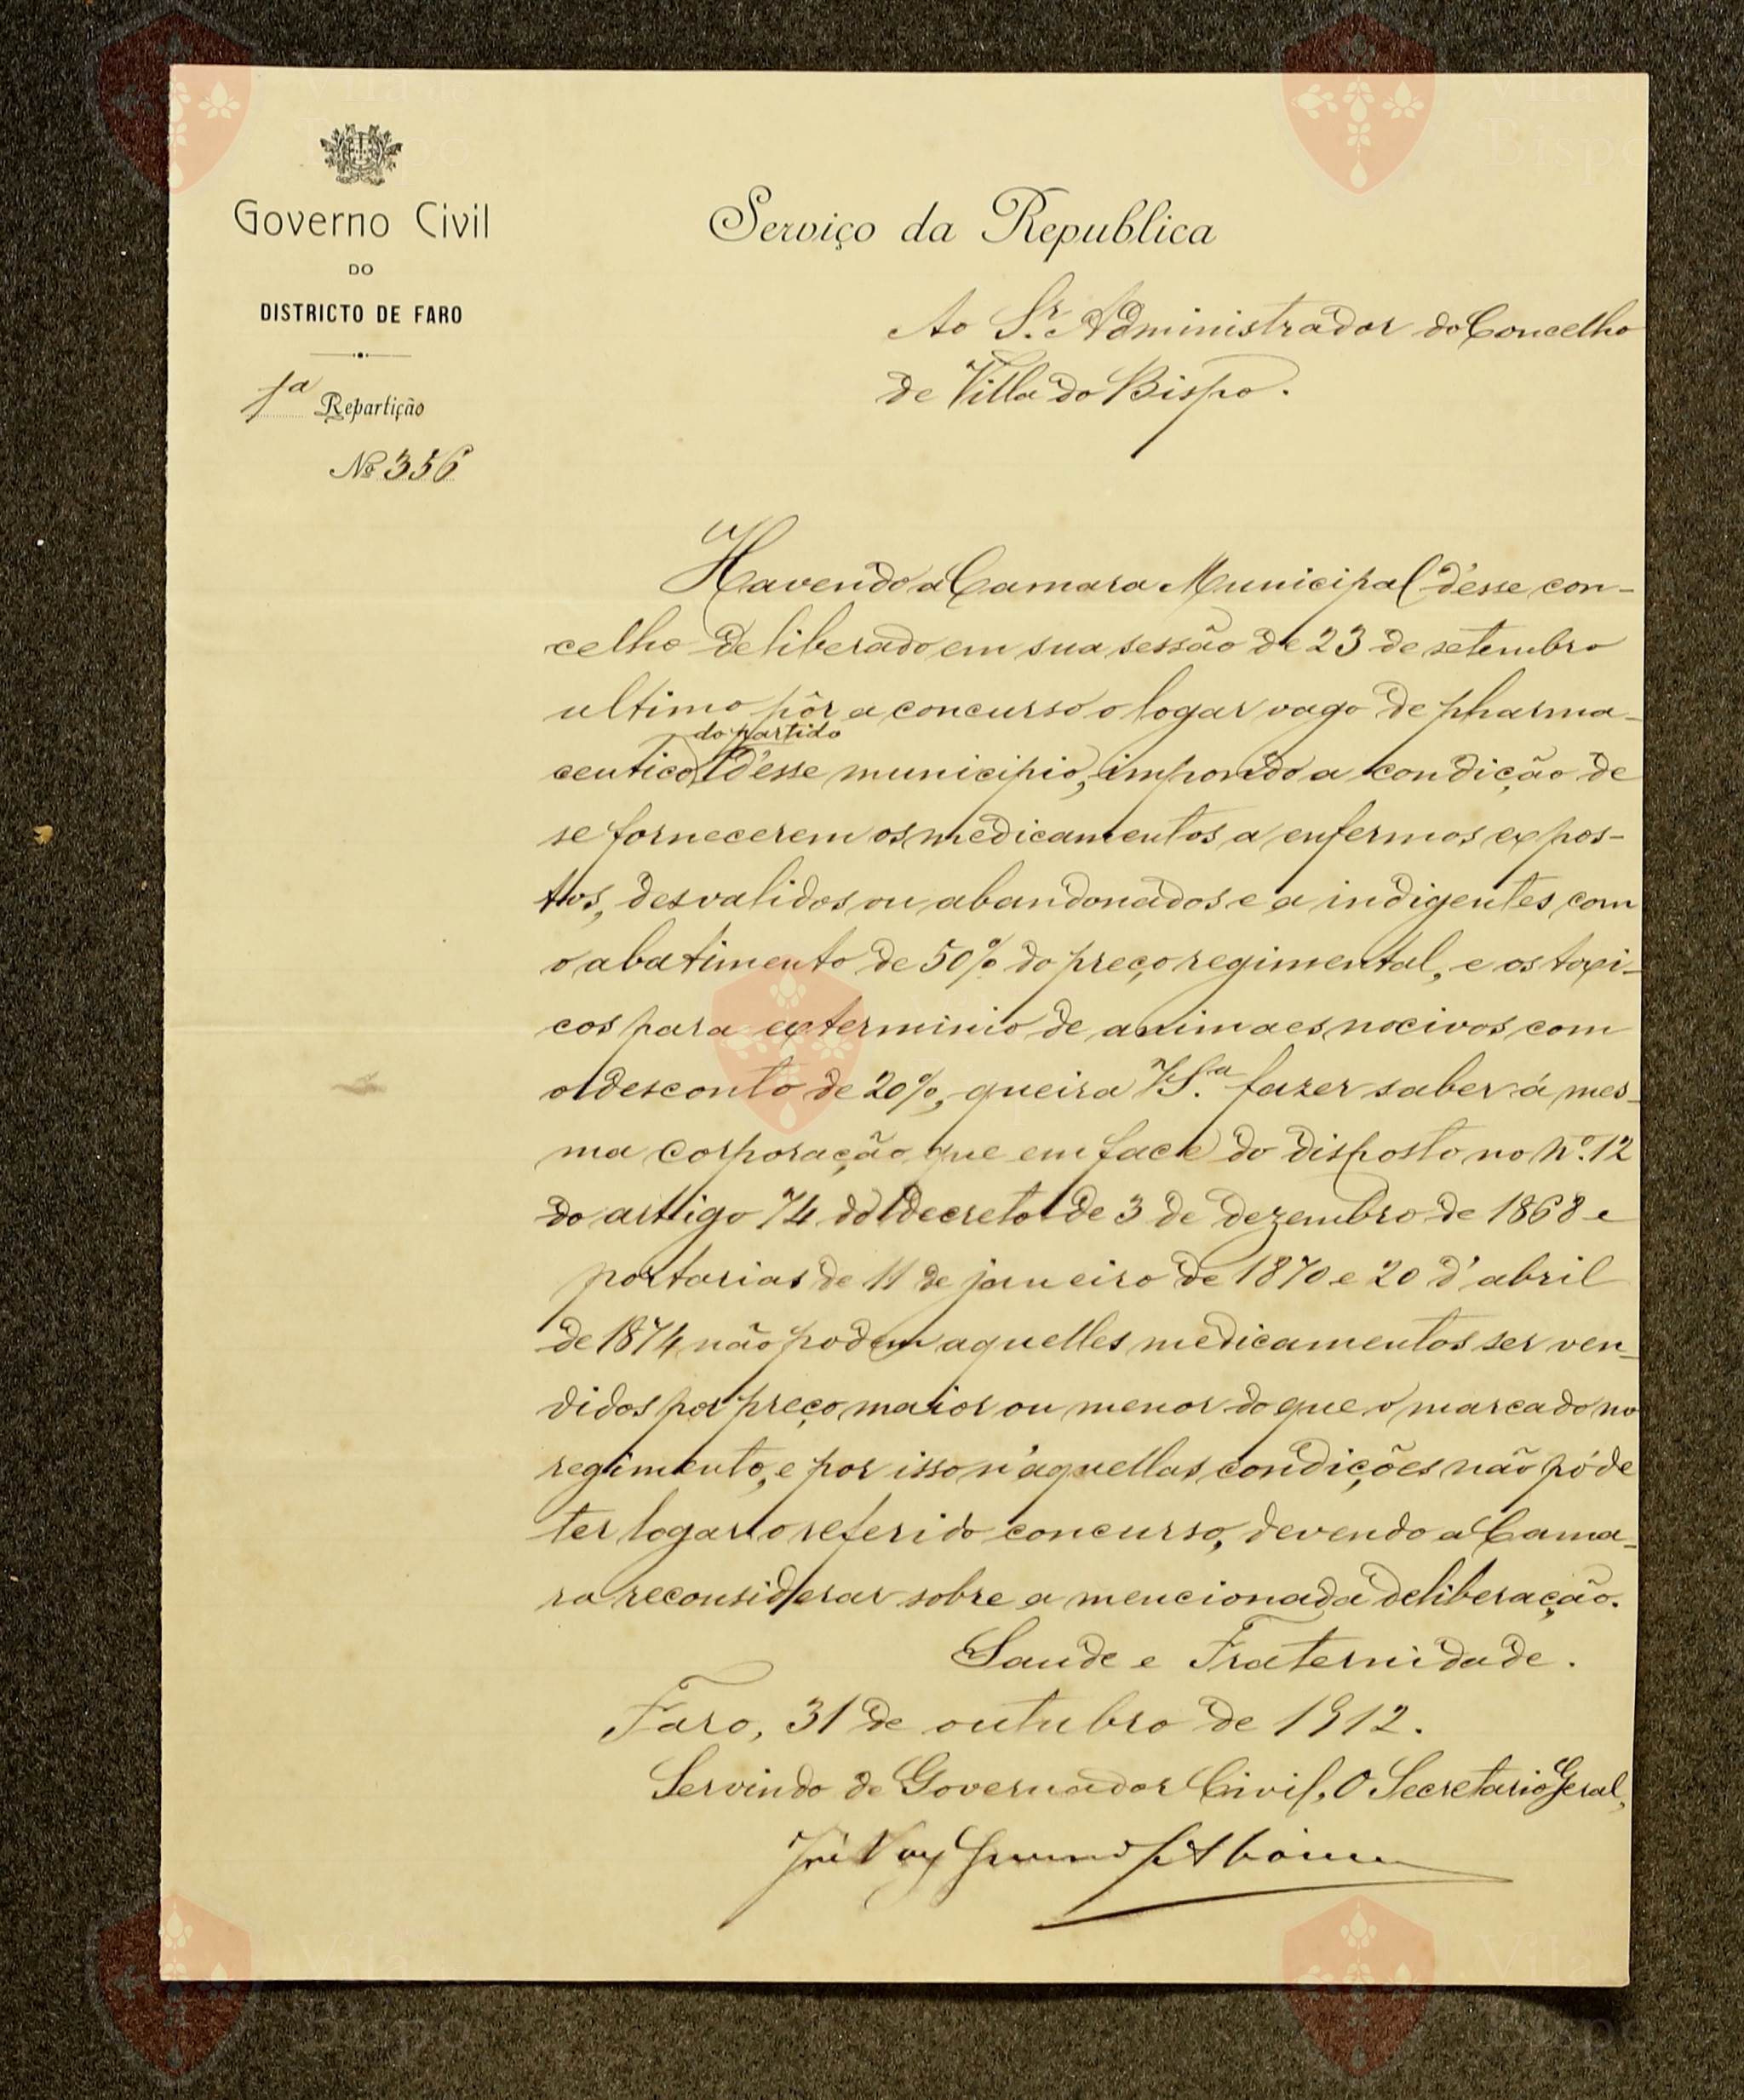 Governo Civil
DO
DISTRICTO DE FARO
1ª Repartição
Nº 356
Serviço da Republica
Ao Sr. Administrador do Concelho
de Villa do Bispo.
Havendo a Camara Municipal d'esse con-
celho deliberado em sua sessão de 23 de setembro
ultimo pôr a concurso o logar vago de pharma-
do partido
ceutico d'esse municipio, impondo a condição de
se fornecerem os medicamentos a enfermos expos-
tos, desvalidos ou abandonados e a indigentes com
o abatimento de 50% do preço regimental, e os toxi-
cos para exterminio de animaes nocivos com
o desconto de 20%, queira V. S.ª fazer saber á mes-
ma corporação que em face do disposto no nº. 12
do artigo 74 do decreto de 3 de dezembro de 1868 e
portarias de 11 de janeiro de 1870 e 20 d'abril
de 1874 não podem aquelles medicamentos ser ven-
didos por preço maior ou menor do que o marcado no
regimento, e por isso n'aquellas condições não póde
ter logar o referido concurso, devendo a Cama-
ra reconsiderar sobre a mencionada deliberação.
Saude e Fraternidade.
Faro, 31 de outubro de 1912.
Servindo de Governador Civil, O Secretario Geral,
José Vaz